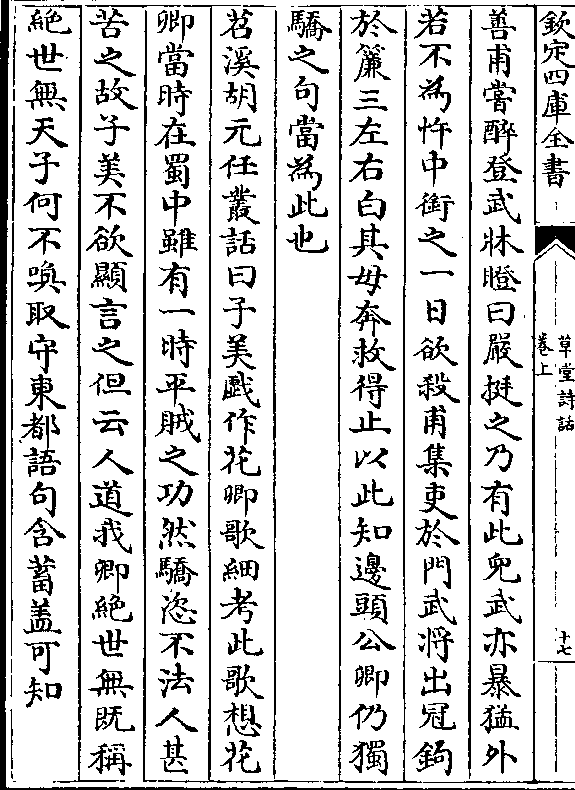 欽定四庫全書
草堂詩話
卷上
十七
善甫嘗醉登武牀瞪曰嚴挺之乃有此兒武亦暴猛外
若不為忤中銜之一日欲殺甫集吏於門武將出冠鉤
於簾三左右白其母奔救得止以此知邊頭公卿仍獨
驕之句當為此也
苕溪胡元任叢話曰子美戲作花卿歌細考此歌想花
卿當時在蜀中雖有一時平賊之功然驕恣不法人甚
苦之故子美不欲顯言之但云人道我卿絶世無既稱
絶世無天子何不喚取守東都語句含蓄盖可知